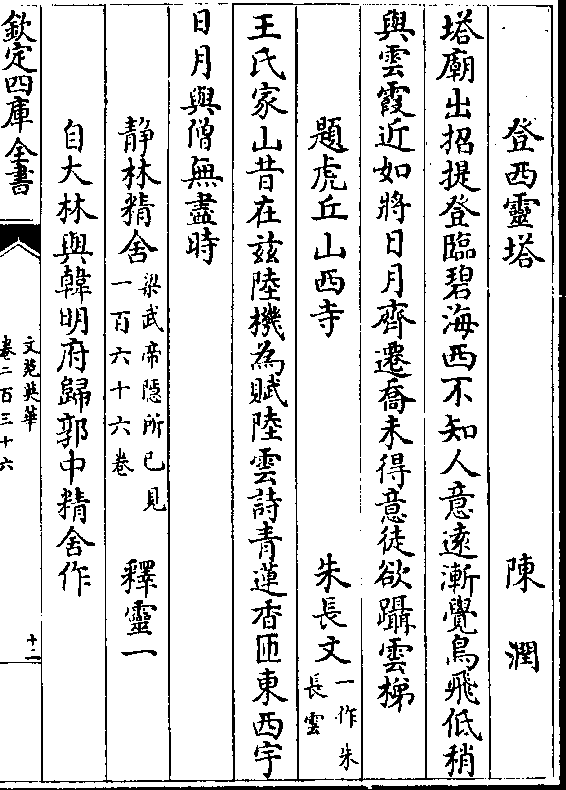 登西靈塔 陳潤
塔廟出招提登臨碧海西不知人意遠漸覺鳥飛低稍
與雲霞近如將日月齊遷喬未得意徒欲躡雲梯
題虎丘山西寺 朱長文一作朱長雲
王氏家山昔在兹陸機為賦陸雲詩青蓮香匝東西宇
日月與僧無盡時
静林精舍梁武帝隠所已見一百六十六卷 釋靈一
自大林與韓明府歸郭中精舍作
欽定四庫全書
文苑英華
卷二百三十六
十二